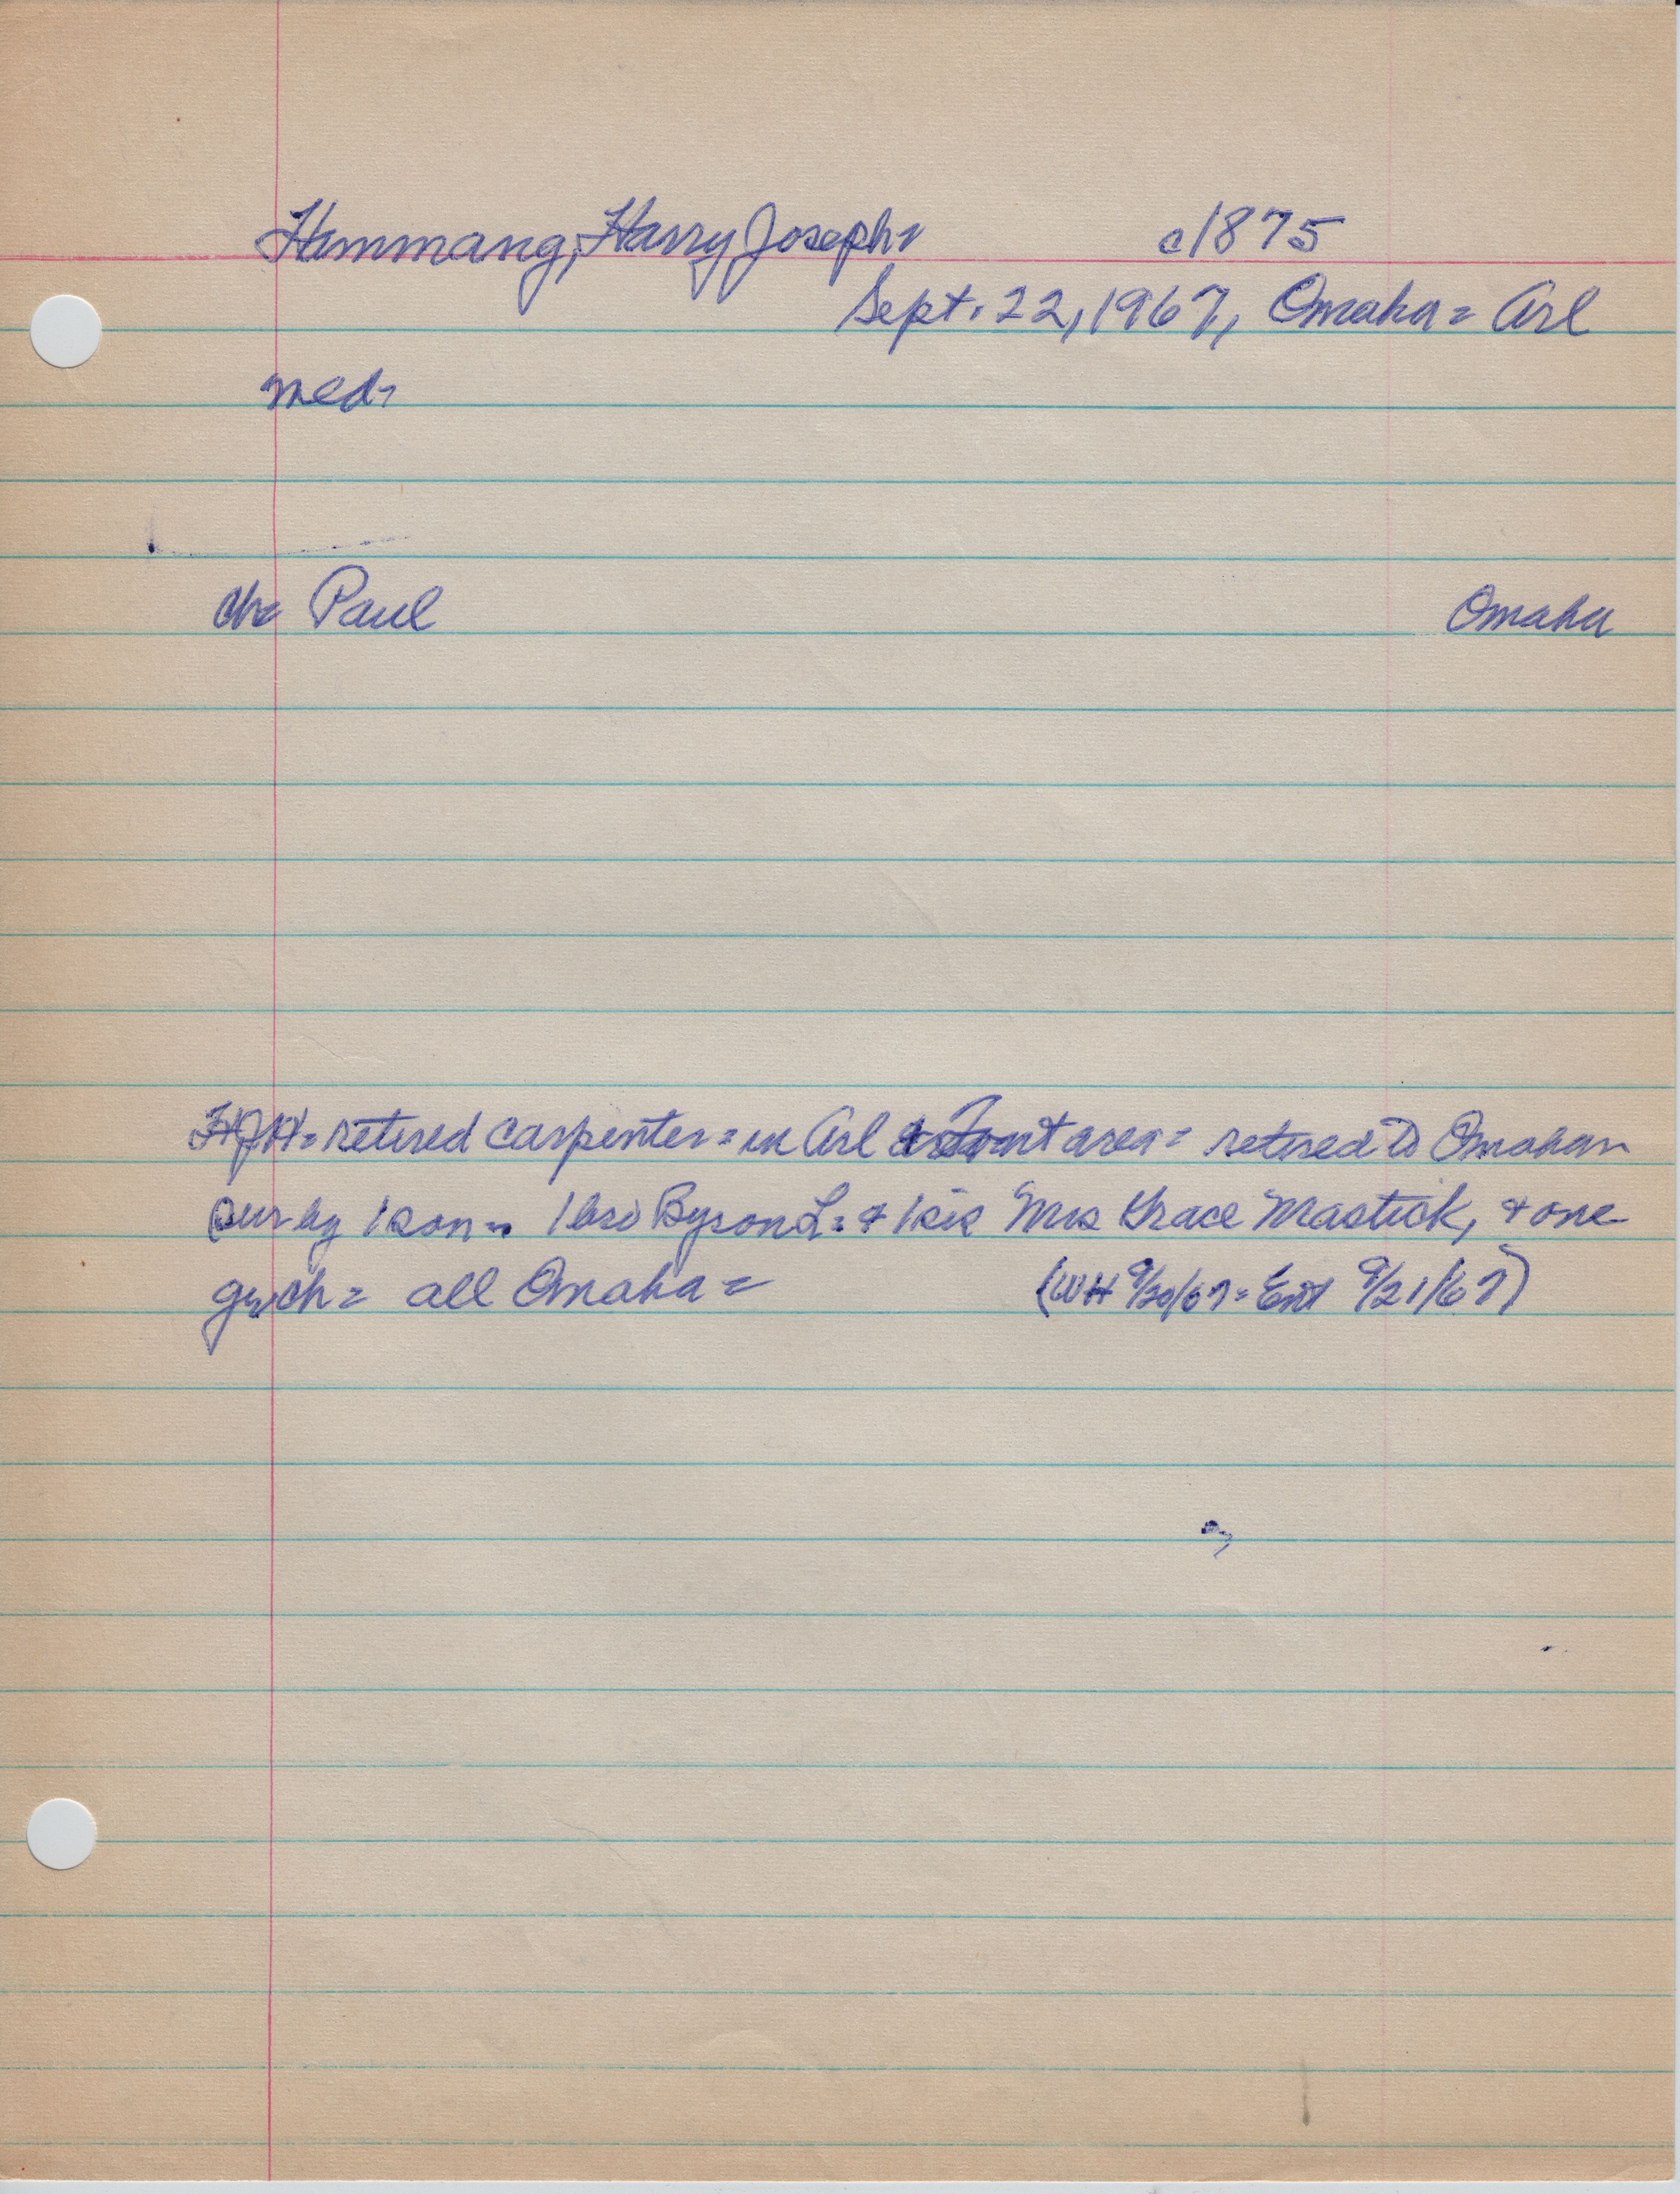 Hammang, Harry Joseph= c1875
Sept. 22, 1967, Omaha= Arl
med=
ch= Paul Omaha
HJH= retired carpenter= in Arl area= retired to Omaha=
sur by 1 son= 1 bro Byron L= + 1 sis Mrs Grace Mastick, + one
gr ch= all Omaha= (WH 9/20/67= Ent 9/21/67)